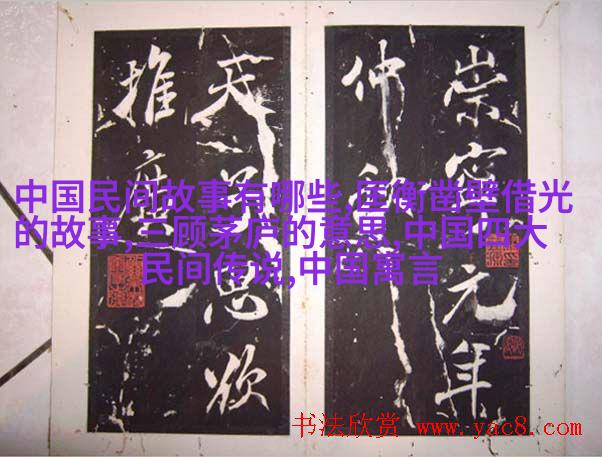 崇寧元年
仲
思欲
推
中国民间故事有哪些,匡衡凿壁借光
的故事,三顾茅庐的意思,中国四大
民间传说,中国寓言
书法欣赏 www.yac8.com